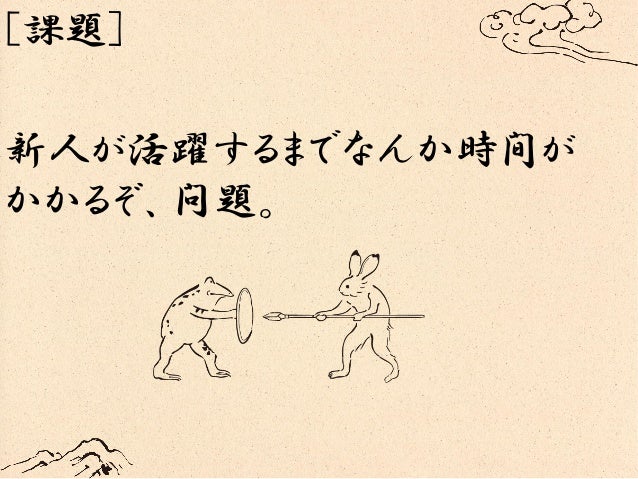 ［課題］
新人が活躍するまでなんか時间が
かかるぞ、问題。